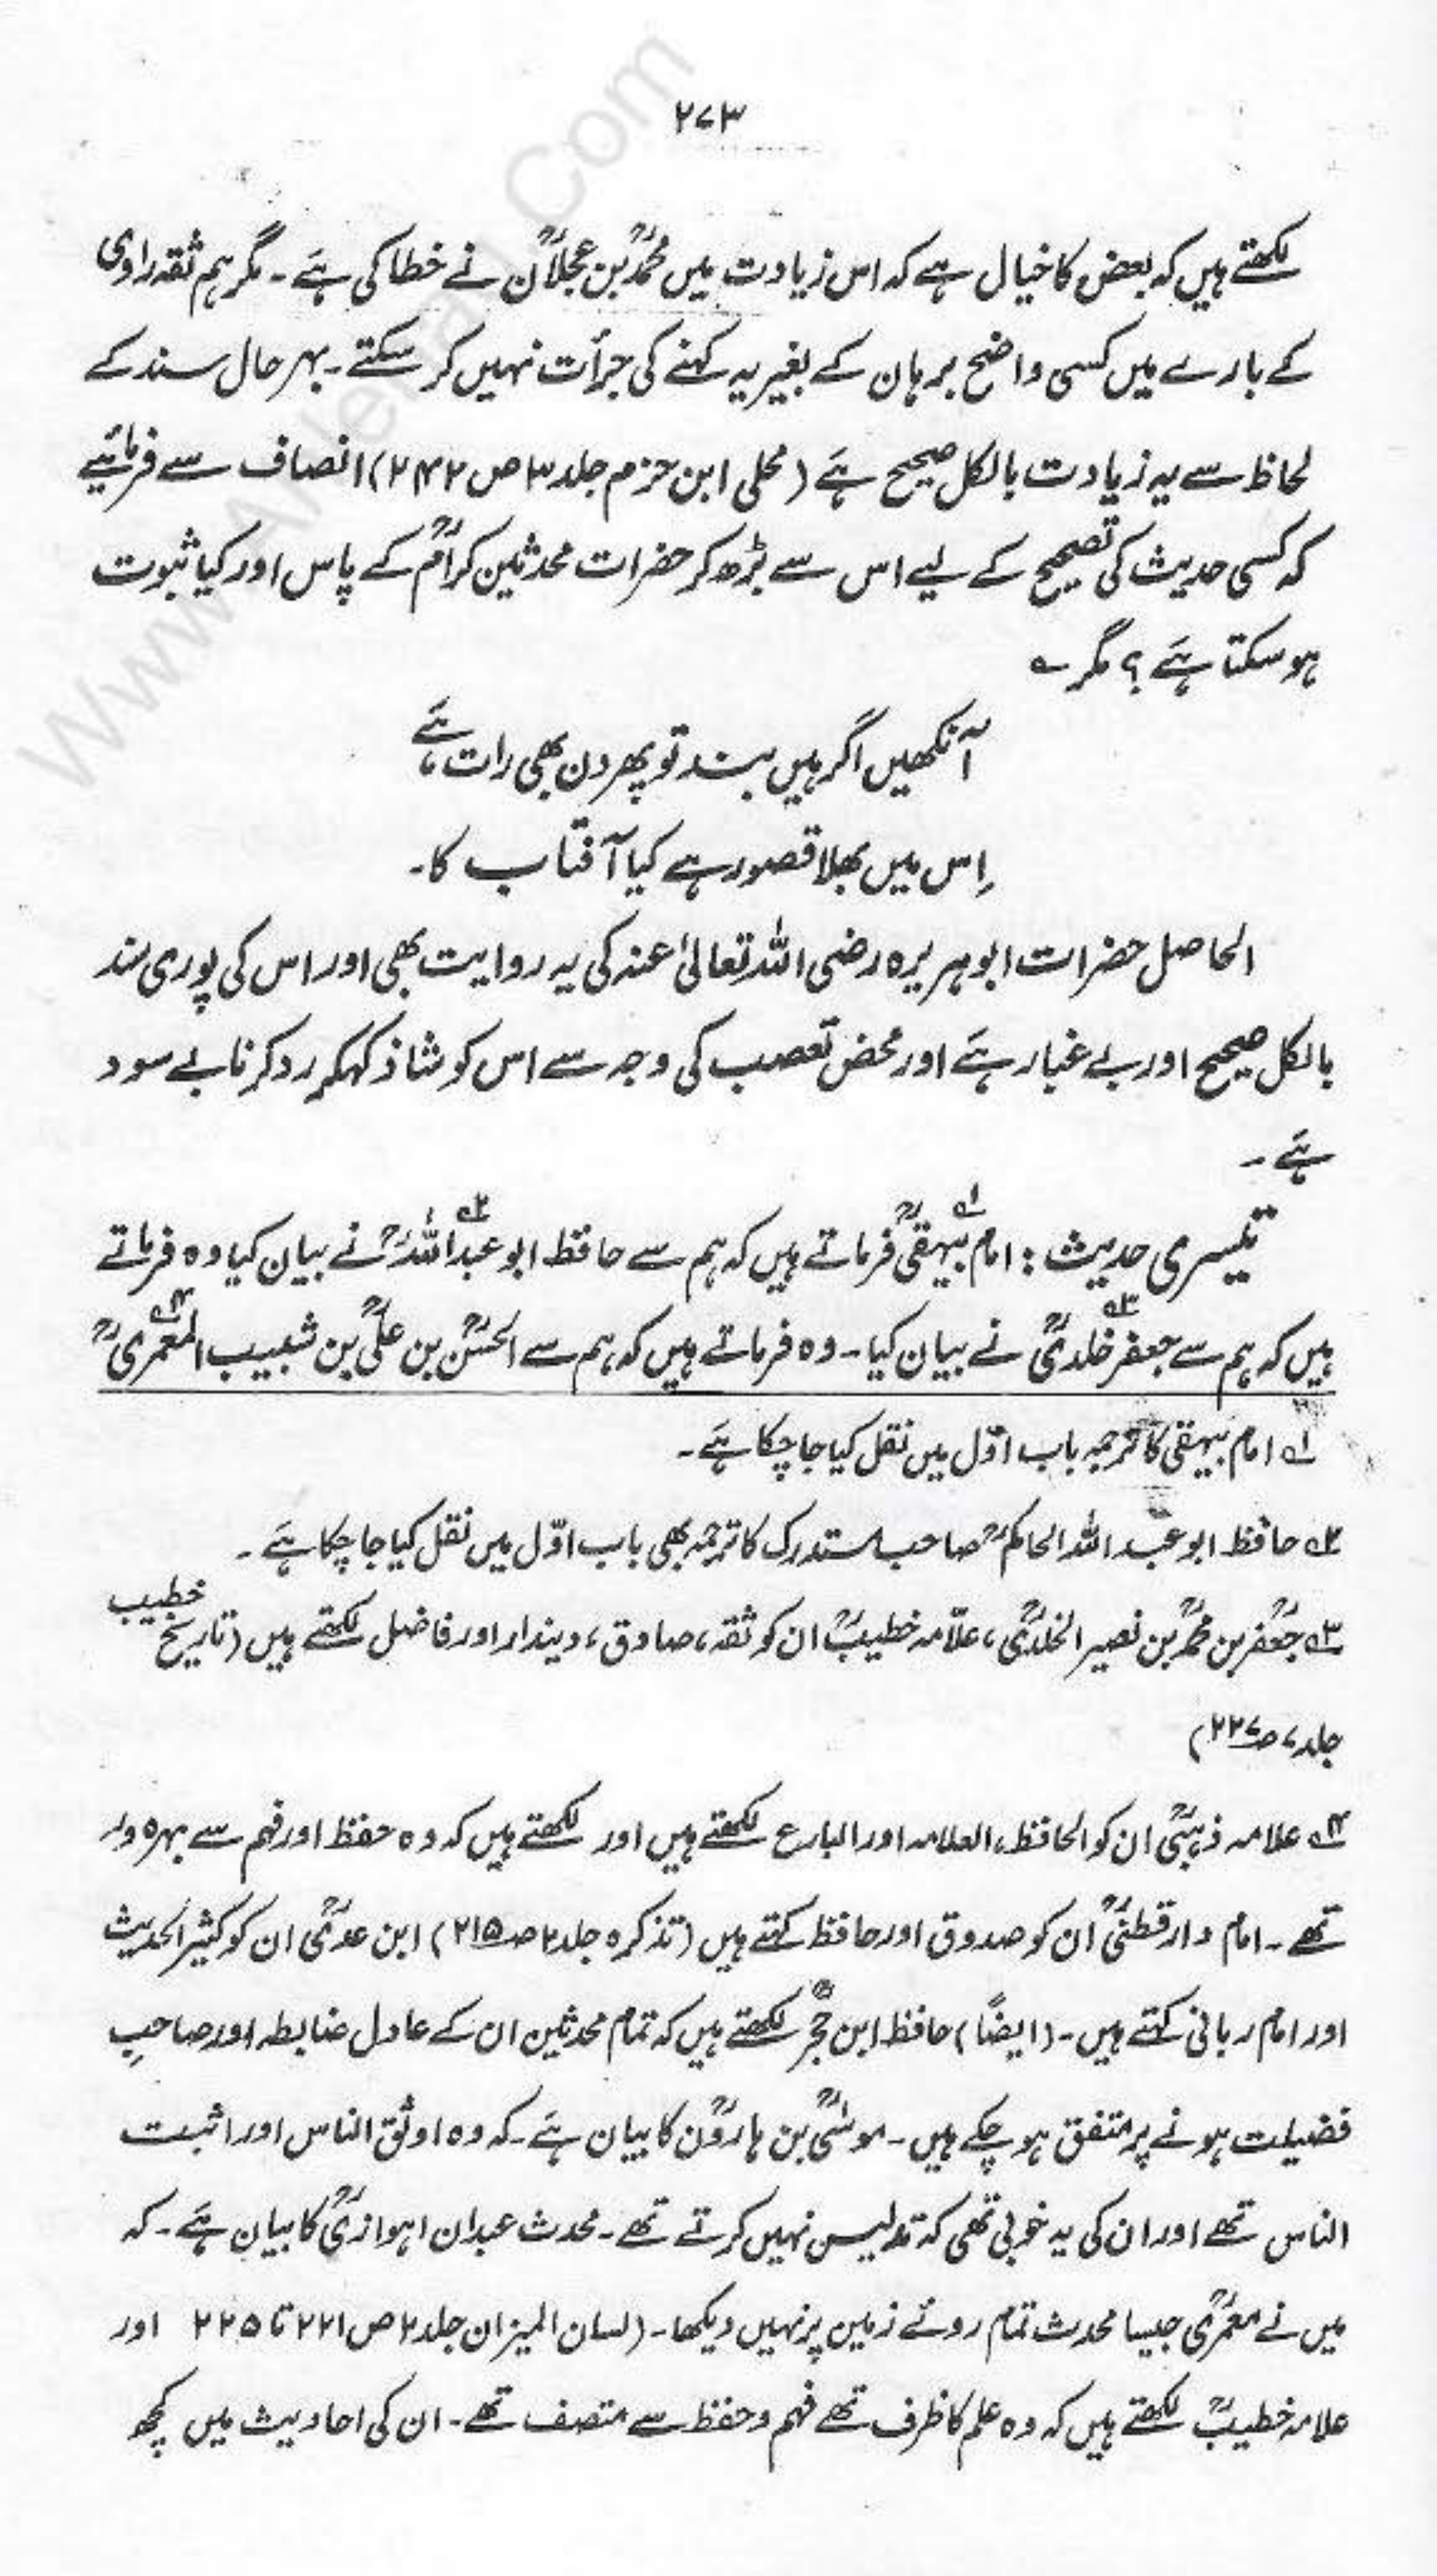 ۲۷۳
لکھتے ہیں کہ بعض کا خیال ہے کہ اس زیادت میں محمدؒ بن عجلانؒ نے خطا کی ہے۔ مگر ہم ثقہ راوی
کے بارے میں کسی واضح برہان کے بغیر یہ کہنے کی جرأت نہیں کر سکتے۔ بہر حال سند کے
لحاظ سے یہ زیادت بالکل صحیح ہے (محلی ابن حزم جلد ۳ ص ۲۴۲) انصاف سے فرمائیے
کہ کسی حدیث کی تصحیح کے لیے اس سے بڑھ کر حضرات محدثین کرامؒ کے پاس اور کیا ثبوت
ہو سکتا ہے؟ مگر ؎
آنکھیں اگر ہیں بند تو پھر دن بھی رات ہے
اِس میں بھلا قصور ہے کیا آفتاب کا۔
الحاصل حضرات ابوہریرہ رضی اللہ تعالیٰ عنہ کی یہ روایت بھی اور اس کی پوری سند
بالکل صحیح اور بے غبار ہے اور محض تعصب کی وجہ سے اس کو شاذ کہکر رد کرنا بے سود
ہے۔
تیسری حدیث: امام بیہقیؒ ؂۱ فرماتے ہیں کہ ہم سے حافظ ابو عبداللہؒ ؂۲ نے بیان کیا وہ فرماتے
ہیں کہ ہم سے جعفر خلدیؒ ؂۳ نے بیان کیا۔ وہ فرماتے ہیں کہ ہم سے الحسنؒ بن علیؒ بن شبیب المعمریؒ ؂۴
؂۱ امام بیہقی کا ترجمہ باب اوّل میں نقل کیا جا چکا ہے۔
؂۲ حافظ ابو عبد اللہ الحاکمؒ صاحب مستدرک کا ترجمہ بھی باب اوّل میں نقل کیا جا چکا ہے۔
؂۳ جعفرؒ بن محمدؒ بن نصیر الخلدیؒ، علّامہ خطیبؒ ان کو ثقہ، صادق، دیندار اور فاضل لکھتے ہیں (تاریخ خطیب
جلد ۷ ص ۲۲۷)
؂۴ علامہ ذہبیؒ ان کو الحافظ، العلامہ اور البارع لکھتے ہیں اور لکھتے ہیں کہ وہ حفظ اور فہم سے بہرہ ور
تھے۔ امام دارقطنیؒ ان کو صدوق اور حافظ کہتے ہیں (تذکرہ جلد ۲ ص ۲۱۵) ابن عدیؒ ان کو کثیر الحدیث
اور امام ربانی کہتے ہیں۔ (ایضًا) حافظ ابن حجرؒ لکھتے ہیں کہ تمام محدثین ان کے عادل ضابطہ اور صاحبِ
فضیلت ہونے پر متفق ہو چکے ہیں۔ موسٰیؒ بن ہارونؒ کا بیان ہے۔ کہ وہ اوثق الناس اور اثبت
الناس تھے اور ان کی یہ خوبی تھی کہ تدلیس نہیں کرتے تھے۔ محدث عبدان اہوازیؒ کا بیان ہے۔ کہ
میں نے معمریؒ جیسا محدث تمام روئے زمین پر نہیں دیکھا۔ (لسان المیزان جلد ۲ ص ۲۲۱ تا ۲۲۵ اور
علامہ خطیبؒ لکھتے ہیں کہ وہ علم کا ظرف تھے فہم و حفظ سے متصف تھے۔ ان کی احادیث میں کچھ